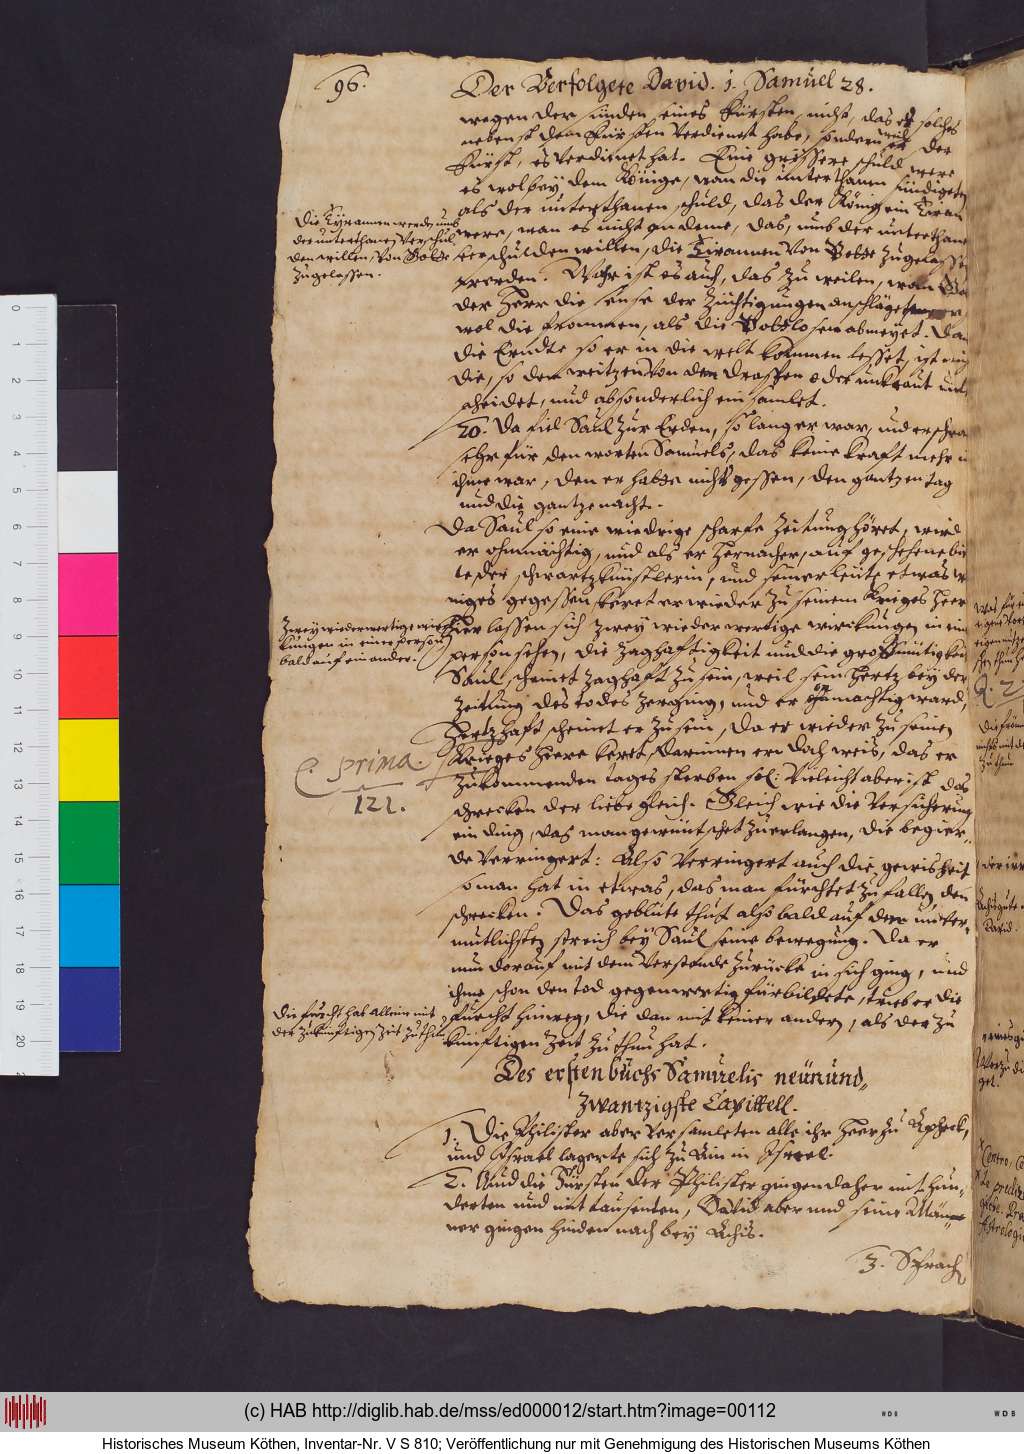 96.
Der Verfolgete David. 1. Samuel 28.
wegen der sünden eines Fürsten, nicht, das er solches
nebenst dem Fürsten verdienet habe, sondern weil der
Fürst, es verdienet hat. Eine grössere schuld were
es wol bey dem Könige, wan die unterthanen sündigeten
als der unterthanen schuld, das der König ein Tiran
were, wan es nicht an deme, das, umb der unterthane
verschulden willen, die Tirannen von Gotte zugelassen
werden. Wahr ist es auch, das zu weilen, wan
der Herr die sense der züchtigungen anschläget, er
wol die frommen, als die Gottlosen abmeyet. Dan
die Erndte so er in die welt kommen lesset, ist
die, so den weitzen von den drassen oder unkraut
scheidet, und absonderlich ein samlet.
Die Tyrannen werden umb
der unterthanen verschul-
den willen, von Gotte
zugelassen.
20. Da fiel Saul zur Erden, so lang er war, und erschra
sehr für den worten Samuels, das keine kraft mehr
ihme war, den er hatte nichts gessen, den gantzen tag
und die gantze nacht.
Da Saul so eine wiedrige scharfe Zeitung höret, wird
er ohnmächtig, und als er hernacher, auf geschehene bit
te der schwartzkünstlerin, und seiner leute etwas
niges gegessen keret er wieder zu seinem Krieges Heer
Hier lassen sich zwey wiederwertige wirckungen in ein
person sehen, die zaghaftigkeit und die grosmütigkeit
Saul scheinet zaghaft zu sein, weil sein Hertz bey der
Zeitung des todes zerging, und er onmachtig ward,
Hertzhaft scheinet er zu sein, da er wieder zu seinem
Krieges Heere keret, darinnen er doch weis, das er
zukommenden tages sterben sol: Vieleicht aber ist das
schrecken der liebe gleich. Gleich wie die versicherung
ein ding, das man gewünschet zu erlangen, die begier-
de verringert: Also verringert auch die gewisheit
so man hat in etwas, das man fürchtet zu fallen den
schrecken. Das geblüte thut also bald auf den unver-
mutlichsten streich bey Saul seine bewegung. Da er
nun darauf mit dem verstande zurücke in sich ging, und
ihme schon den tod gegenwertig fürbildete, trieb er die
furcht hinweg, die dan mit keiner andern, als der zu
künftigen Zeit zu thun hat.
Zwey wiederwertige wir-
kungen in einer person
bald auf einander.
C. prima.
121.
Die furcht hat allein mit
der zukünftigen Zeit zu thun.
Des ersten buchs Samuelis neünund-
zwantzigste Capittell.
1. Die Philister aber versamleten alle ihr Heer zu Apheck,
und Israel lagerte sich zu Ain in Isreel.
2. Und die Fürsten der Philister gingen daher mit hun-
derten und mit tausenten, David aber und seine Män-
ner gingen hinden nach bey Achis.
3. Sprach
(c) HAB http://diglib.hab.de/mss/ed000012/start.htm?image=00112
Historisches Museum Köthen, Inventar-Nr. V S 810; Veröffentlichung nur mit Genehmigung des Historischen Museums Köthen